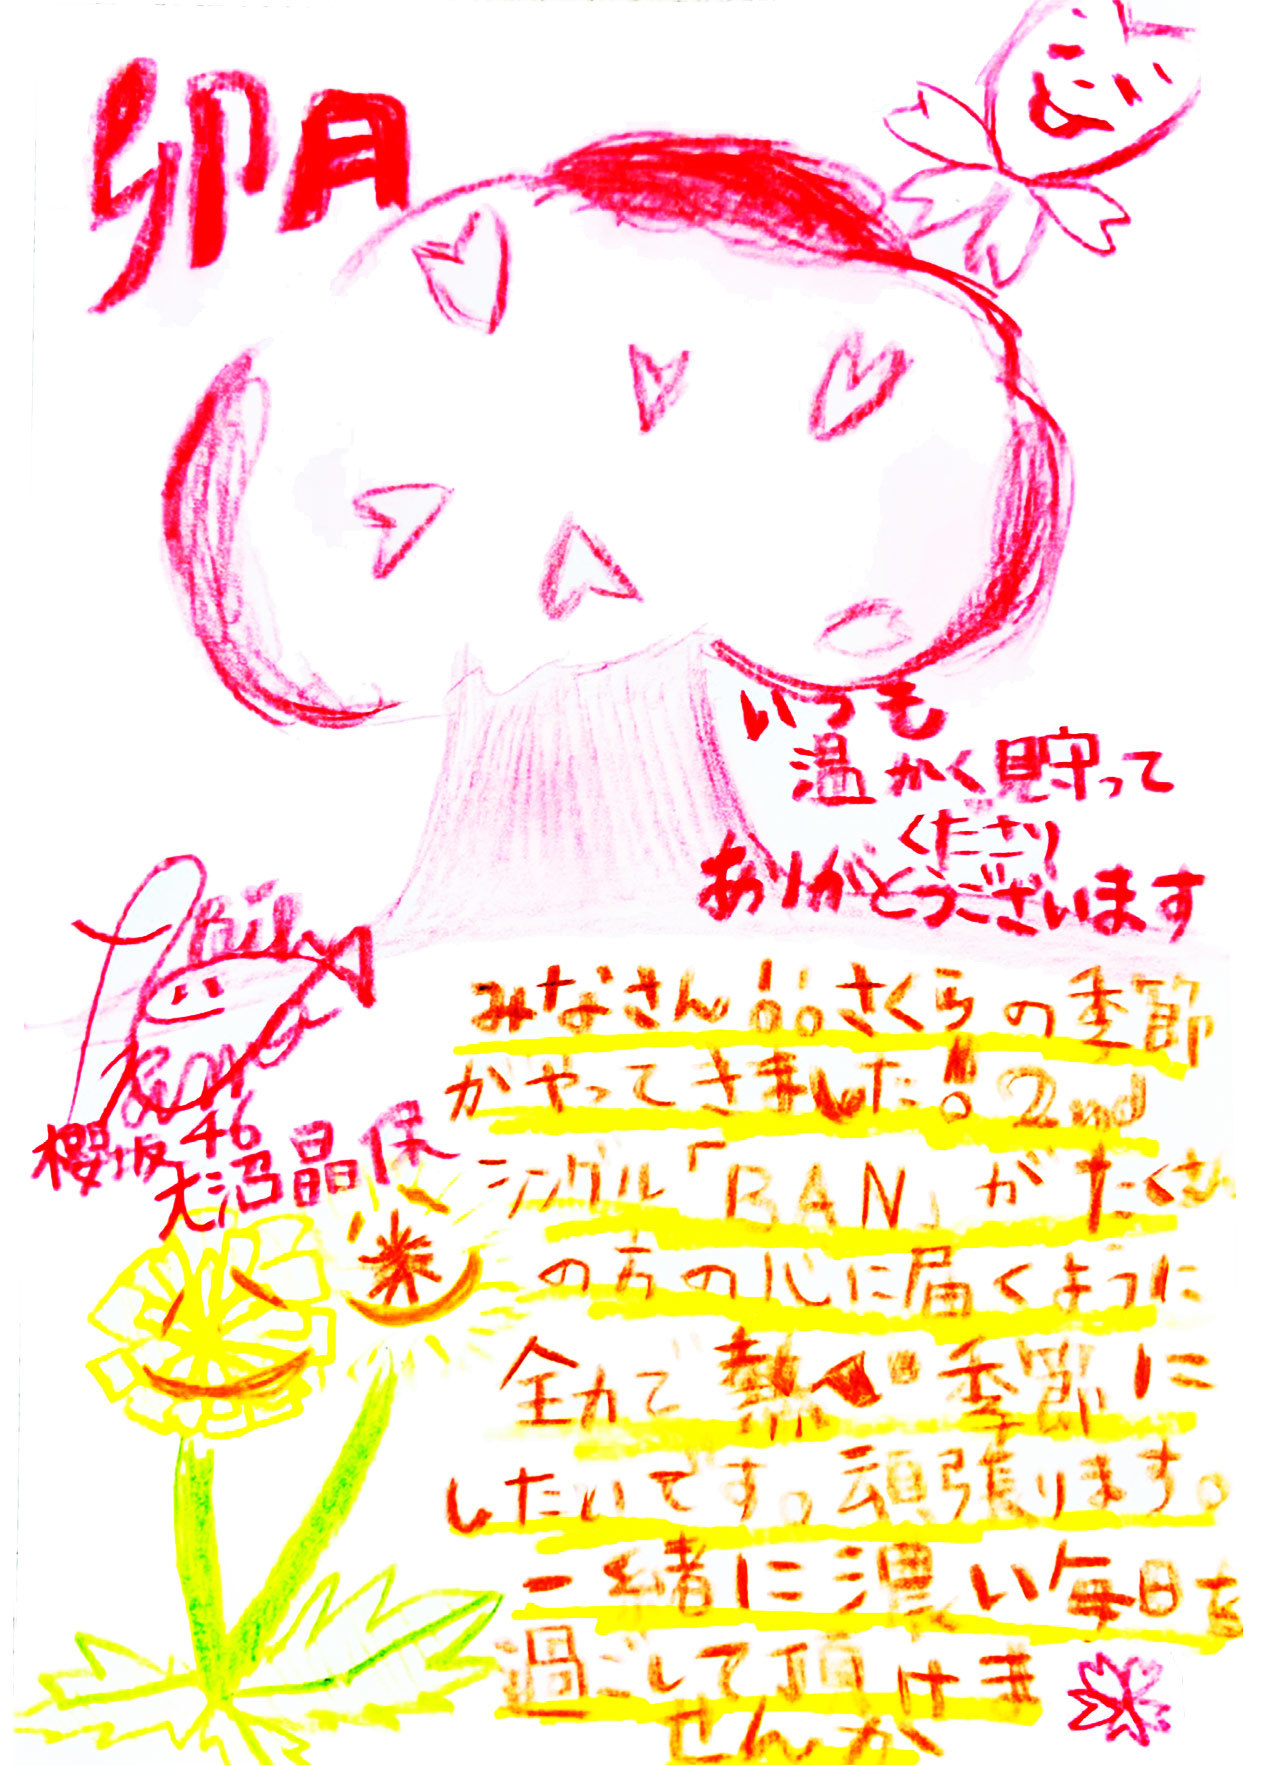 卯月
いつも
温かく見守って
くださり
ありがとうございます
櫻坂46
大沼晶保
みなさん!!さくらの季節
がやってきました!! 2nd
シングル「BAN」がたくさん
の方の心に届くように
全力で熱い季節に
したいです。頑張ります。
一緒に濃い毎日を
過ごして頂けま
せんか